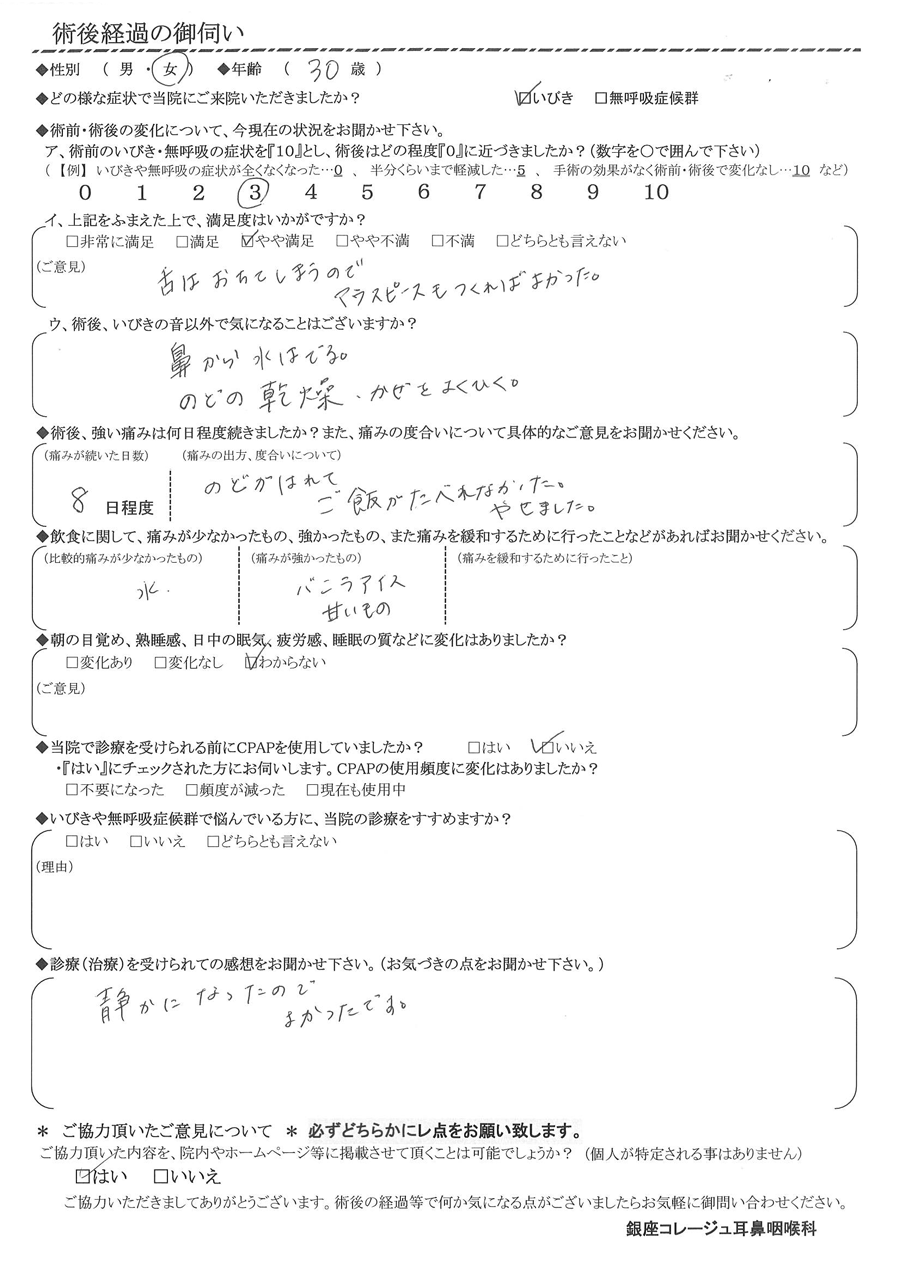 術後経過の御伺い
◆性別　（ 男 ・ 女 ）　◆年齢　（　30　歳 ）
◆どの様な症状で当院にご来院いただきましたか？　☑いびき　□無呼吸症候群
◆術前・術後の変化について、今現在の状況をお聞かせ下さい。
ア、術前のいびき・無呼吸の症状を『10』とし、術後はどの程度『0』に近づきましたか？（数字を〇で囲んで下さい）
（ 【例】 いびきや無呼吸の症状が全くなくなった…0 、 半分くらいまで軽減した…5 、 手術の効果がなく術前・術後で変化なし…10 など）
0　1　2　3　4　5　6　7　8　9　10
イ、上記をふまえた上で、満足度はいかがですか？
□非常に満足　□満足　☑やや満足　□やや不満　□不満　□どちらとも言えない
（ご意見）
舌は おちてしまうので
アラスピースもつくればよかった。
ウ、術後、いびきの音以外で気になることはございますか？
鼻から 水はでる。
のどの 乾燥、かぜをよくひく。
◆術後、強い痛みは何日程度続きましたか？また、痛みの度合いについて具体的なご意見をお聞かせください。
（痛みが続いた日数）　（痛みの出方、度合いについて）
8 日程度
のどがはれて
ご飯がたべれなかった。
やせました。
◆飲食に関して、痛みが少なかったもの、強かったもの、また痛みを緩和するために行ったことなどがあればお聞かせください。
（比較的痛みが少なかったもの）　（痛みが強かったもの）　（痛みを緩和するために行ったこと）
水.
バニラアイス
甘いもの
◆朝の目覚め、熟睡感、日中の眠気、疲労感、睡眠の質などに変化はありましたか？
□変化あり　□変化なし　☑わからない
（ご意見）
◆当院で診療を受けられる前にCPAPを使用していましたか？　□はい　☑いいえ
・『はい』にチェックされた方にお伺いします。CPAPの使用頻度に変化はありましたか？
□不要になった　□頻度が減った　□現在も使用中
◆いびきや無呼吸症候群で悩んでいる方に、当院の診療をすすめますか？
□はい　□いいえ　□どちらとも言えない
（理由）
◆診療（治療）を受けられての感想をお聞かせ下さい。（お気づきの点をお聞かせ下さい。）
静かに なったので
よかったです。
＊ ご協力頂いたご意見について ＊ 必ずどちらかにレ点をお願い致します。
ご協力頂いた内容を、院内やホームページ等に掲載させて頂くことは可能でしょうか？（個人が特定される事はありません）
☑はい　□いいえ
ご協力いただきましてありがとうございます。術後の経過等で何か気になる点がございましたらお気軽に御問い合わせください。
銀座コレージュ耳鼻咽喉科